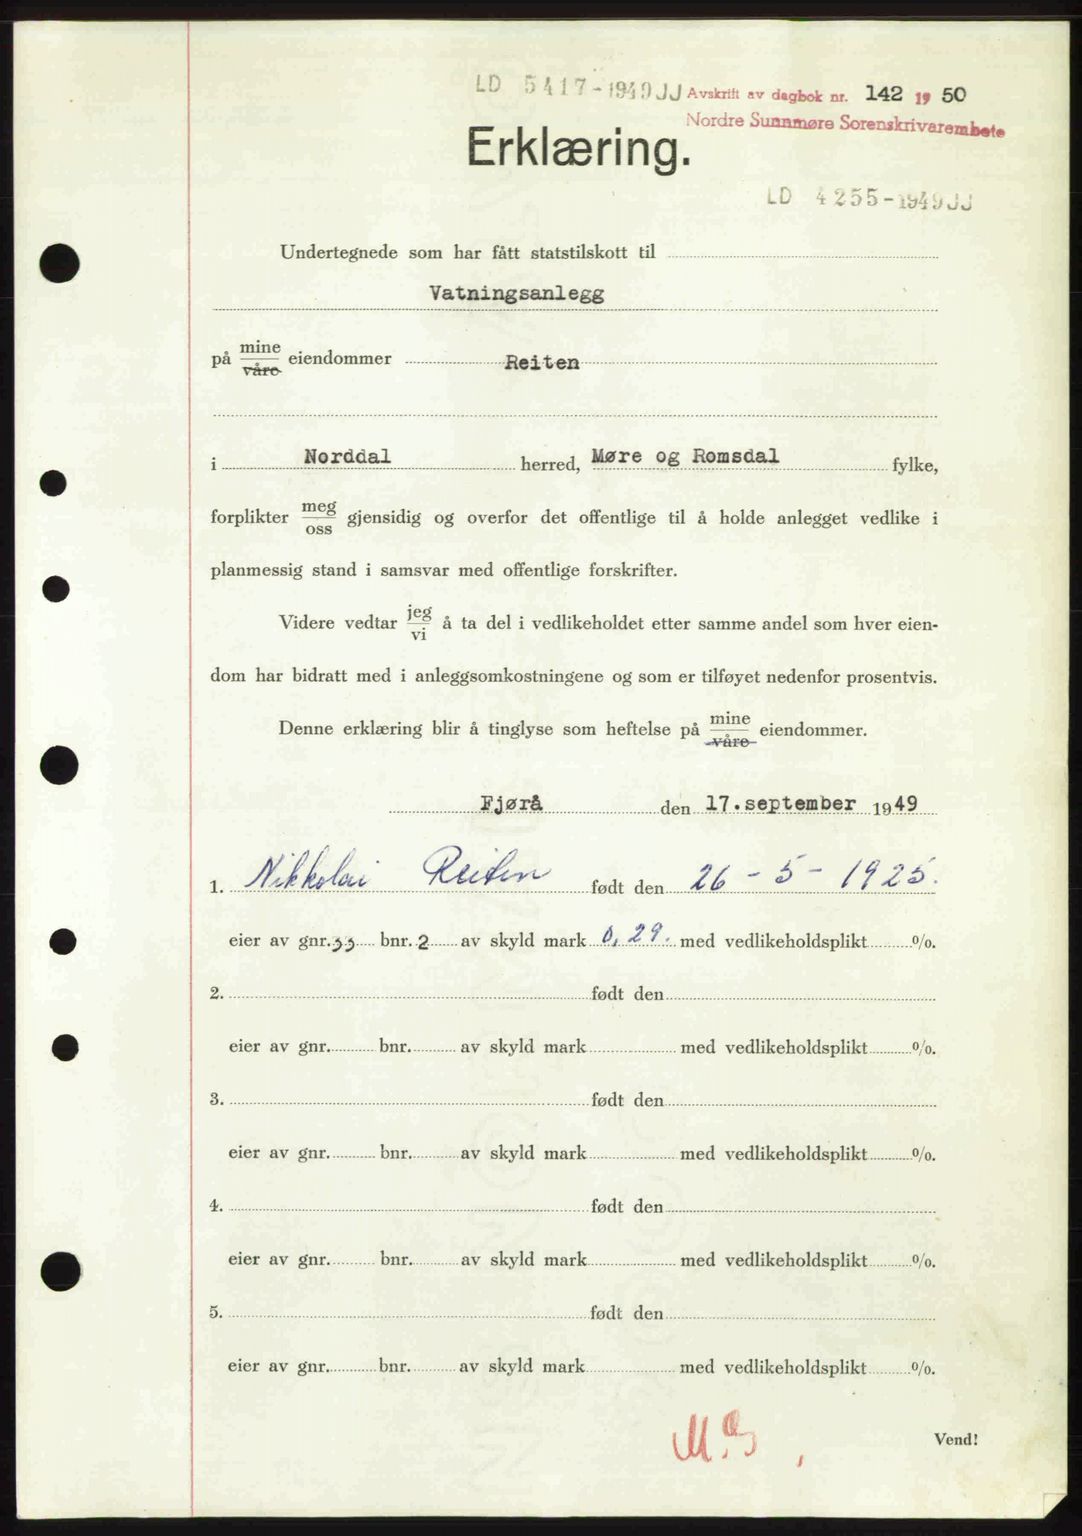 LD 5417-1949 JJ Avskrift av dagbok nr. 142 19 50
Nordre Sunnmøre Sorenskrivarembete
Erklæring.
LD 4255-1949 JJ
Undertegnede som har fått statstilskott til
Vatningsanlegg
på mine/våre eiendommer Reiten
i Norddal herred, Møre og Romsdal fylke,
forplikter meg/oss gjensidig og overfor det offentlige til å holde anlegget vedlike i
planmessig stand i samsvar med offentlige forskrifter.
Videre vedtar jeg/vi å ta del i vedlikeholdet etter samme andel som hver eien-
dom har bidratt med i anleggsomkostningene og som er tilføyet nedenfor prosentvis.
Denne erklæring blir å tinglyse som heftelse på mine/våre eiendommer.
Fjørå den 17.september 1949
1. Nikkolai Reiten født den 26-5-1925.
eier av gnr. 33 bnr. 2 av skyld mark 0,29. med vedlikeholdsplikt %.
2. født den
eier av gnr. bnr. av skyld mark med vedlikeholdsplikt %.
3. født den
eier av gnr. bnr. av skyld mark med vedlikeholdsplikt %.
4. født den
eier av gnr. bnr. av skyld mark med vedlikeholdsplikt %.
5. født den
eier av gnr. bnr. av skyld mark med vedlikeholdsplikt %.
Vend!